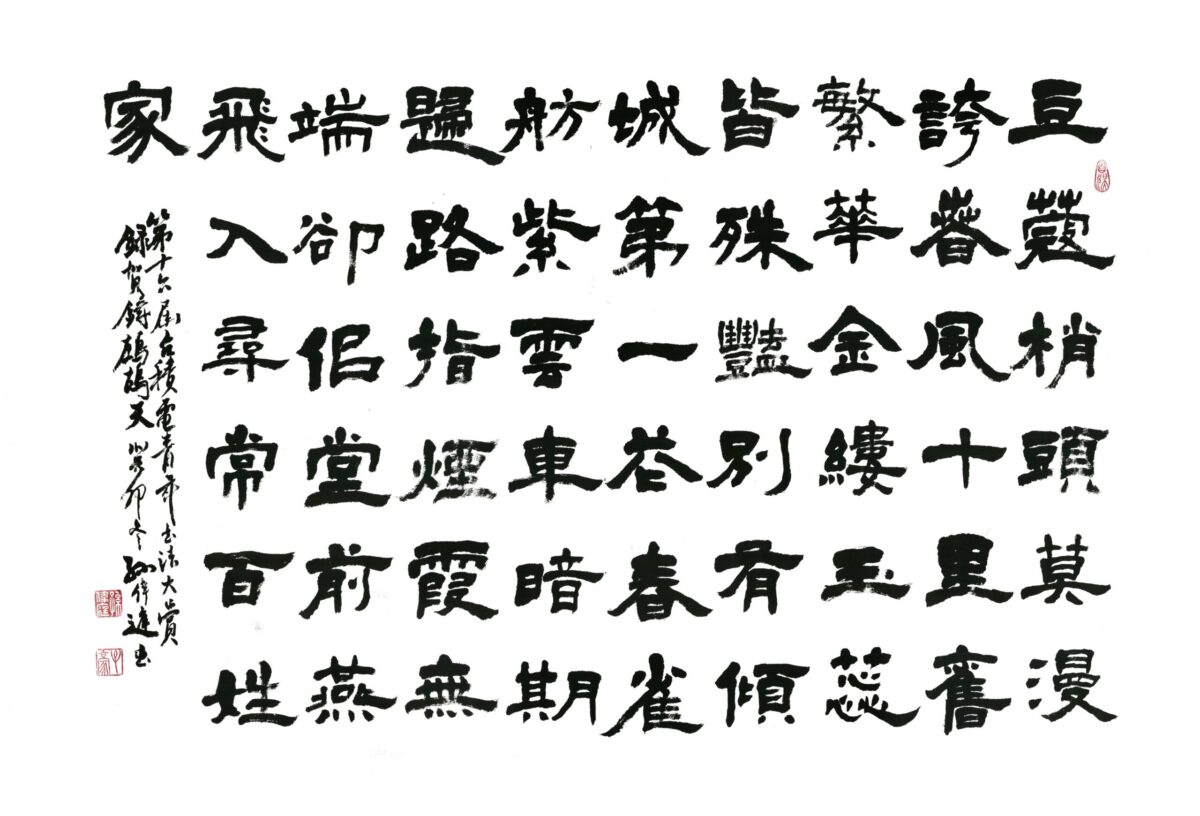 豆蔻梢頭莫漫
誇春風十里舊
繁華金縷玉蕊
皆殊豔別有傾
城第一花春雀
舫紫雲車暗期
歸路指煙霞無
端卻佀堂前燕
飛入尋常百姓
家
第十六屆台積電青年書法大賞
錄賀鑄鷓鴣天癸卯冬孫偉進書